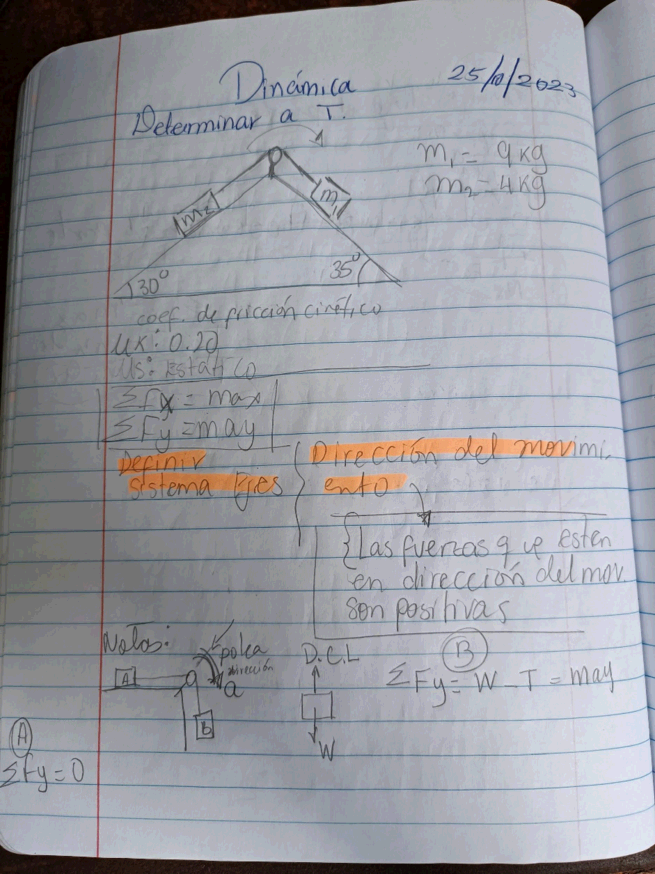 Dinámica
25/10/2023
Determinar a T.
m₁ = 9 kg
m₂ = 4 kg
m₂
m₁
30°
35°
coef. de fricción cinético
μK: 0.20
μs: Estático
ΣFx = max
ΣFy = may
Definir
sistema Ejes
Dirección del movimi.
ento
Las fuerzas que esten
en dirección del mov.
son positivas
Notas:
polea
dirección
a
A
B
D.C.L
W
B
ΣFy = W - T = may
A
ΣFy = 0